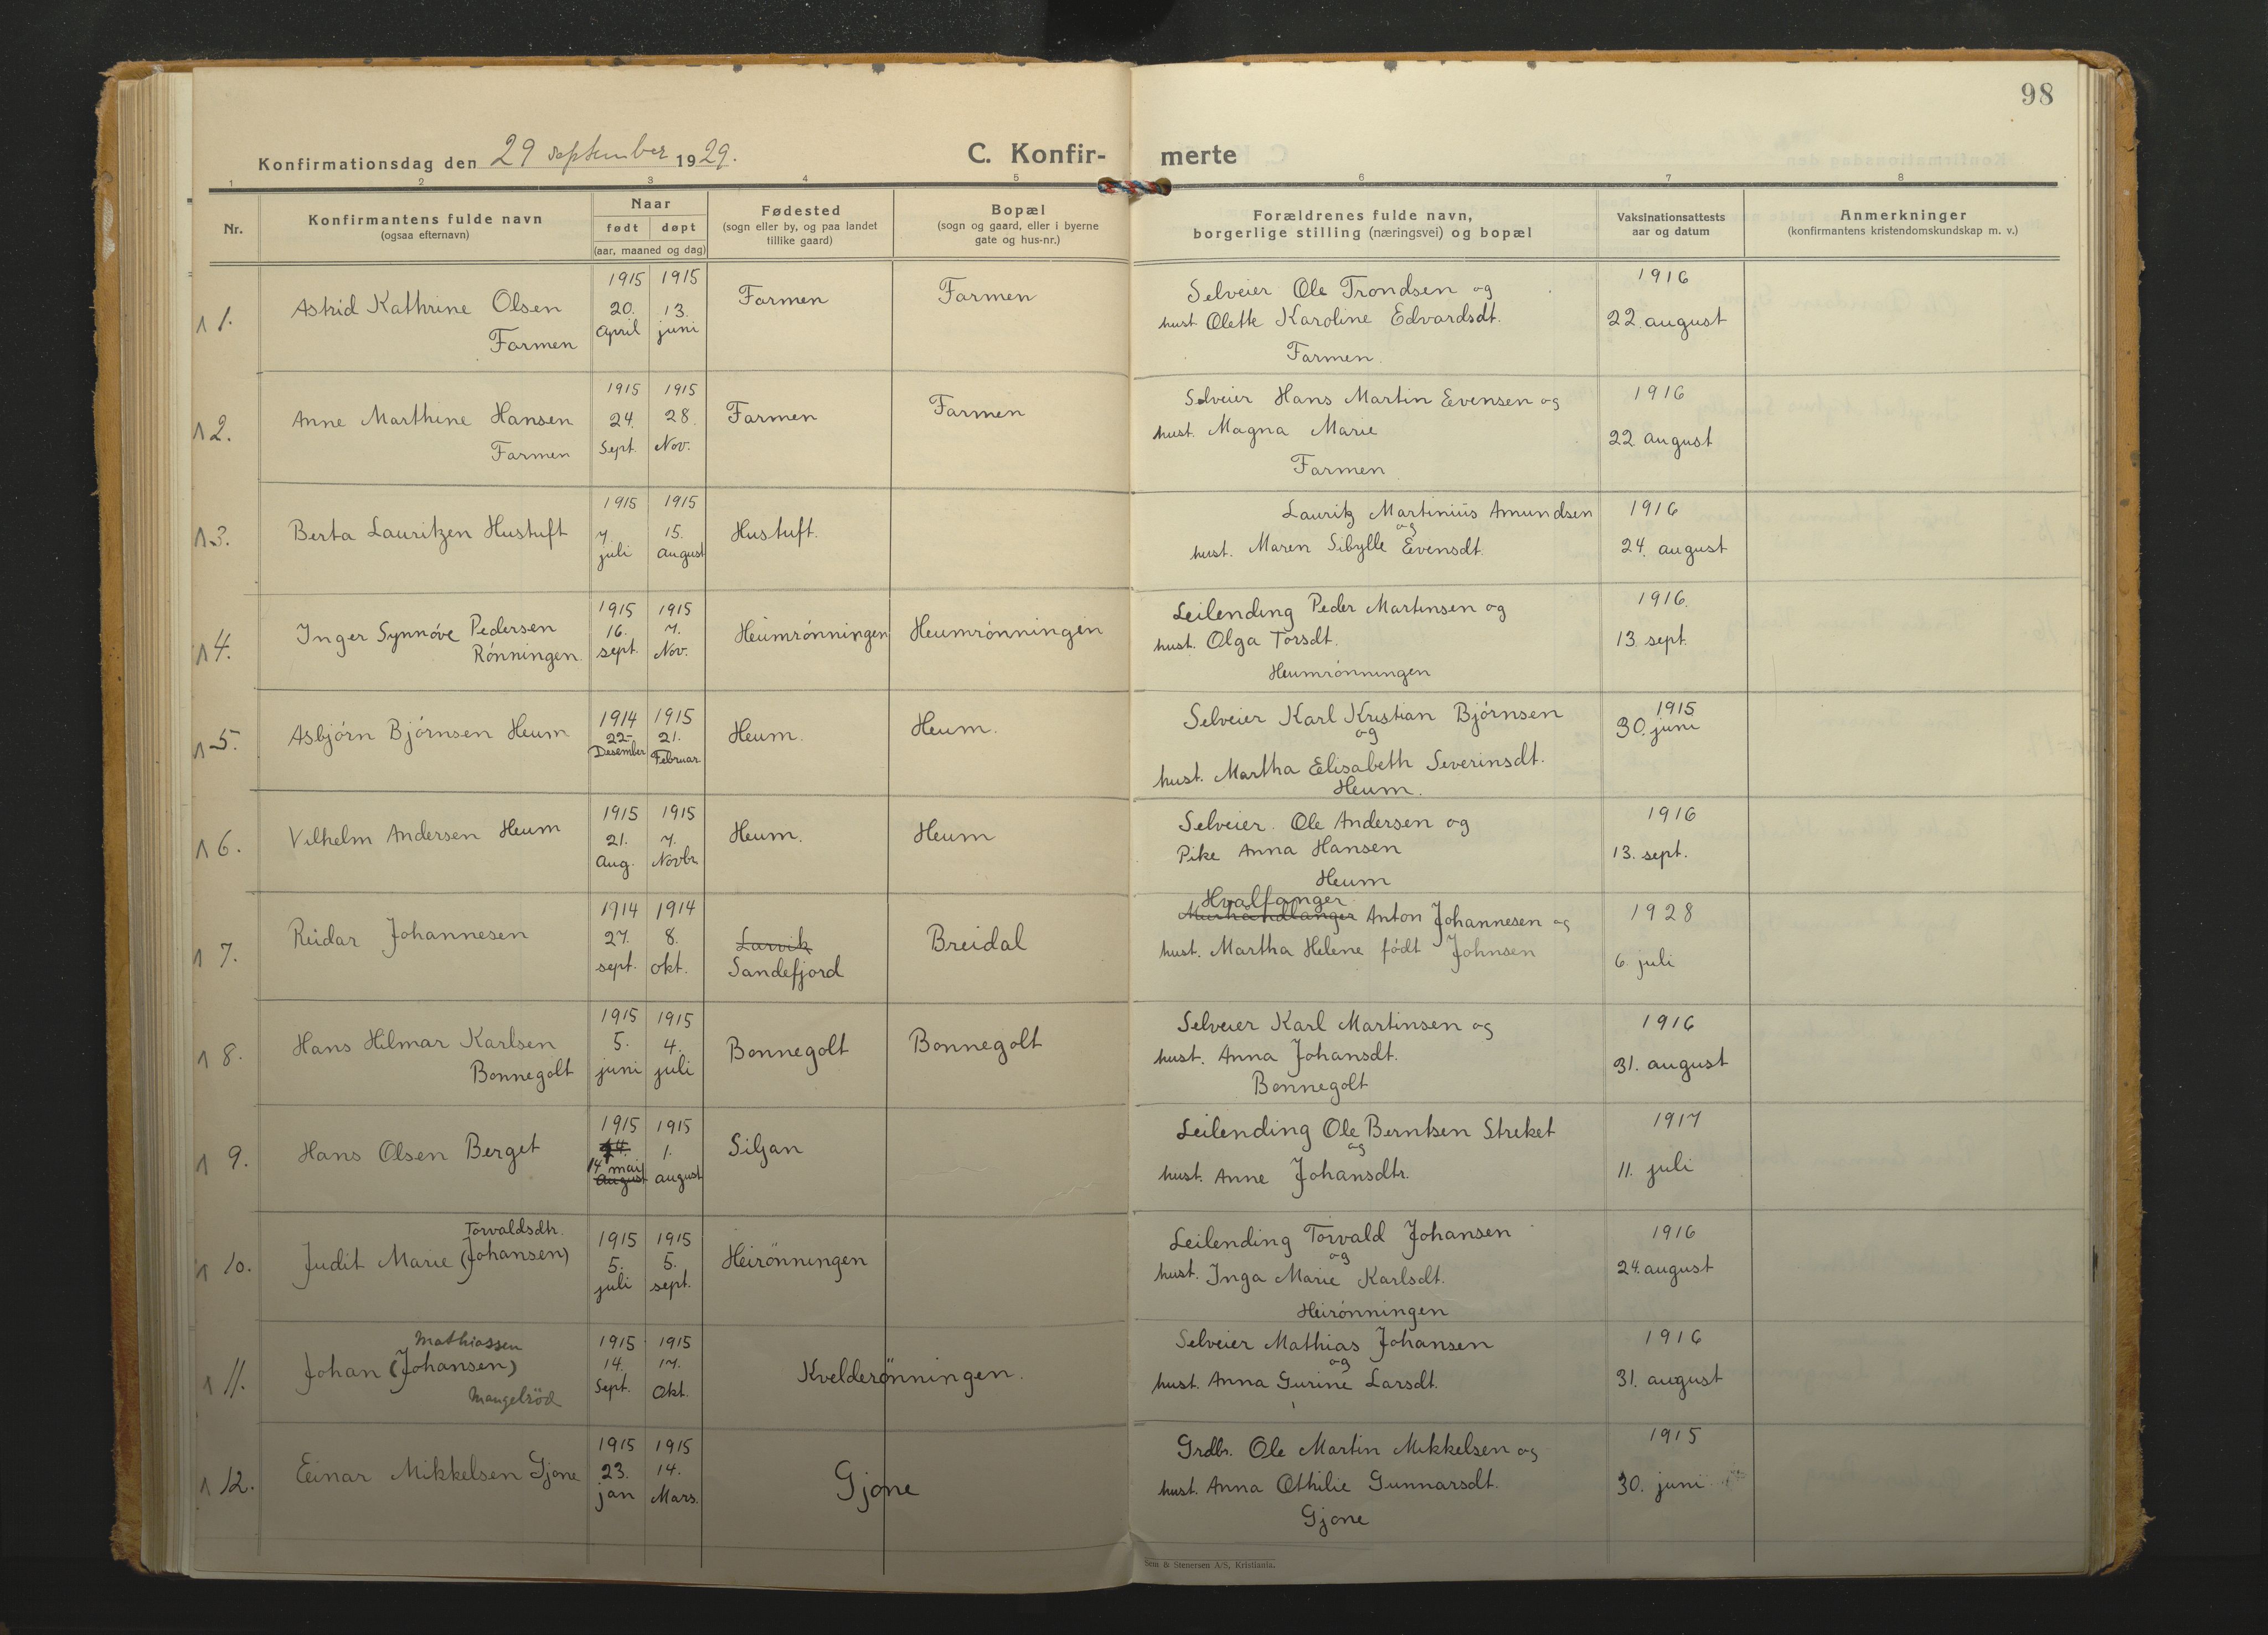 98
Konfirmationsdag den 29 september 1929.
C. Konfir- merte
1 2 3 4 5 6 7 8
Nr.
Konfirmantens fulde navn
(ogsaa efternavn)
Naar
født døpt
(aar, maaned og dag)
Fødested
(sogn eller by, og paa landet
tillike gaard)
Bopæl
(sogn og gaard, eller i byerne
gate og hus-nr.)
Forældrenes fulde navn,
borgerlige stilling (næringsvei) og bopæl
Vaksinationsattests
aar og datum
Anmerkninger
(konfirmantens kristendomskundskap m. v.)
1.
Astrid Kathrine Olsen
Farmen
1915
20.
April
1915
13.
juni
Farmen
Farmen
Selveier Ole Trondsen og
hust Olette Karoline Edvardsdt.
Farmen.
1916
22. august
2.
Anne Marthine Hansen
Farmen
1915
24.
Sept.
1915
28.
Nov.
Farmen
Farmen
Selveier Hans Martin Evensen og
hust. Magna Marie
Farmen
1916
22 august
3.
Berta Lauritzen Hustuft
1915
7.
juli
1915
15.
august
Hustuft.
Lauritz Martinius Amundsen
og
hust. Maren Sibylle Evensdt.
1916
24. august
4.
Inger Synnóve Pedersen
Rónningen.
1915
16.
sept.
1915
7.
Nov.
Heumrónningen
Heumrónningen
Leilending Peder Martinsen og
hust. Olga Torsdt.
Heumrónningen
1916.
13. sept.
5.
Asbjórn Bjórnsen Heum
1914
22-
Desember
1915
21.
Februar
Heum.
Heum.
Selveier Karl Kristian Bjórnsen
og
hust. Martha Elisabeth Severinsdt.
Heum.
1915
30. juni
6.
Vilhelm Andersen Heum
1915
21.
Aug.
1915
7.
Novbr.
Heum.
Heum
Selveier. Ole Andersen og
Pike Anna Hansen
Heum
1916
13. sept.
7.
Reidar Johannesen
1914
27.
sept.
1914
8.
okt.
Larvik
Sandefjord
Breidal
Hvalfanger
Murhandlanger Anton Johannesen og
hust. Martha Helene fódt Johnsen
1928
6. juli
8.
Hans Hilmar Karlsen
Bonnegolt
1915
5.
juni
1915
4.
juli
Bonnegolt
Bonnegolt
Selveier Karl Martinsen og
hust. Anna Johansdt.
Bonnegolt
1916
31. august
9.
Hans Olsen Berget
1915
14 mai
August
1915
1.
august
Siljan
Leilending Ole Berntsen Streket
og
hust. Anne Johansdtr.
1917
11. juli
10.
Torvaldsdtr.
Judit Marie (Johansen)
1915
5.
juli
1915
5.
sept.
Heirönningen
Leilending Torvald Johansen
og
hust. Inga Marie Karlsdt.
Heirónningen
1916
24. august
11.
Mathiassen
Johan (Johansen)
Mangelröd
1915
14.
Sept.
1915
17.
Okt.
Kvelderönningen.
Selveier Mathias Johansen
og
hust. Anna Gurine Larsdt.
1916
31. august
12.
Einar Mikkelsen Gjone
1915
23.
jan
1915
14.
Mars.
Gjone
Grdbr. Ole Martin Mikkelsen og
hust. Anna Othilie Gunnarsdt.
Gjone
1915
30. juni
Sem & Stenersen A/S, Kristiania.